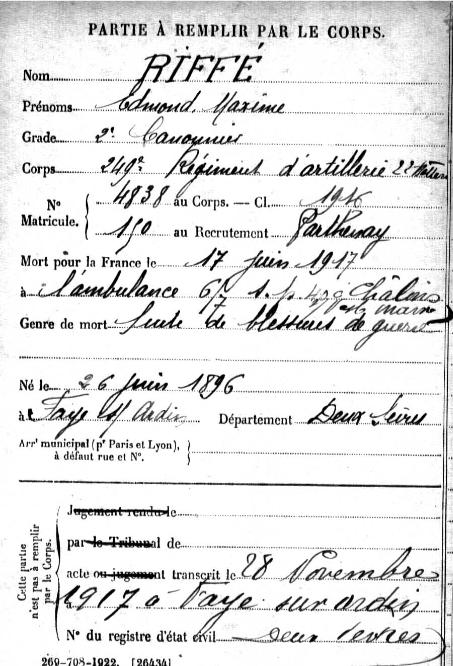 PARTIE À REMPLIR PAR LE CORPS.
Nom RIFFÉ
Prénoms Edmond Maxime
Grade 2e Canonnier
Corps 249e Régiment d'artillerie 22e Batterie
Nº Matricule. { 4838 au Corps. — Cl. 1916
150 au Recrutement Parthenay
Mort pour la France le 17 juin 1917
à l'ambulance 6/7 s.p. Châlons
s/ marne
Genre de mort Suite de blessures de guerre
Né le 26 juin 1896
à Faye s/ Ardin Département Deux Sèvres
Arrt municipal (pr Paris et Lyon), à défaut rue et Nº. }
Cette partie n'est pas à remplir par le Corps. {
Jugement rendu le
par le Tribunal de
acte ou jugement transcrit le 28 Novembre
1917 à Faye sur ardin
Nº du registre d'état civil Deux Sèvres
269-708-1922. [26434]